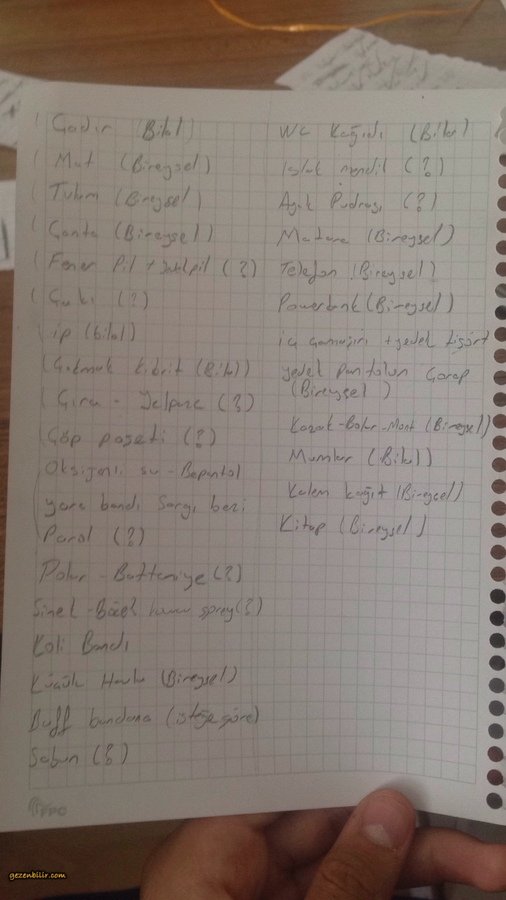 Çadır (Bilal)
Mat (Bireysel)
Tulum (Bireysel)
Çanta (Bireysel)
Fener Pil + yedek pil (?)
Çakı (?)
ip (bilal)
Çakmak kibrit (Bilal)
Çıra - Yelpaze (?)
Çöp poşeti (?)
Oksijenli su - Bepantol
yara bandı Sargı bezi
Parol (?)
Polar - Battaniye (?)
Sinek - Böcek kovucu sprey (?)
Koli Bandı
Küçük Havlu (Bireysel)
Buff bandana (isteğe göre)
Sabun (?)
WC Kağıdı (Bilal)
Islak mendil (?)
Ayak Pudrası (?)
Matara (Bireysel)
Telefon (Bireysel)
Powerbank (Bireysel)
iç çamaşırı + yedek tişört
yedek pantolon Çorap
(Bireysel)
Kazak - Polar - Mont (Bireysel)
Mumlar (Bilal)
Kalem kağıt (Bireysel)
Kitap (Bireysel)
gezenbilir.com